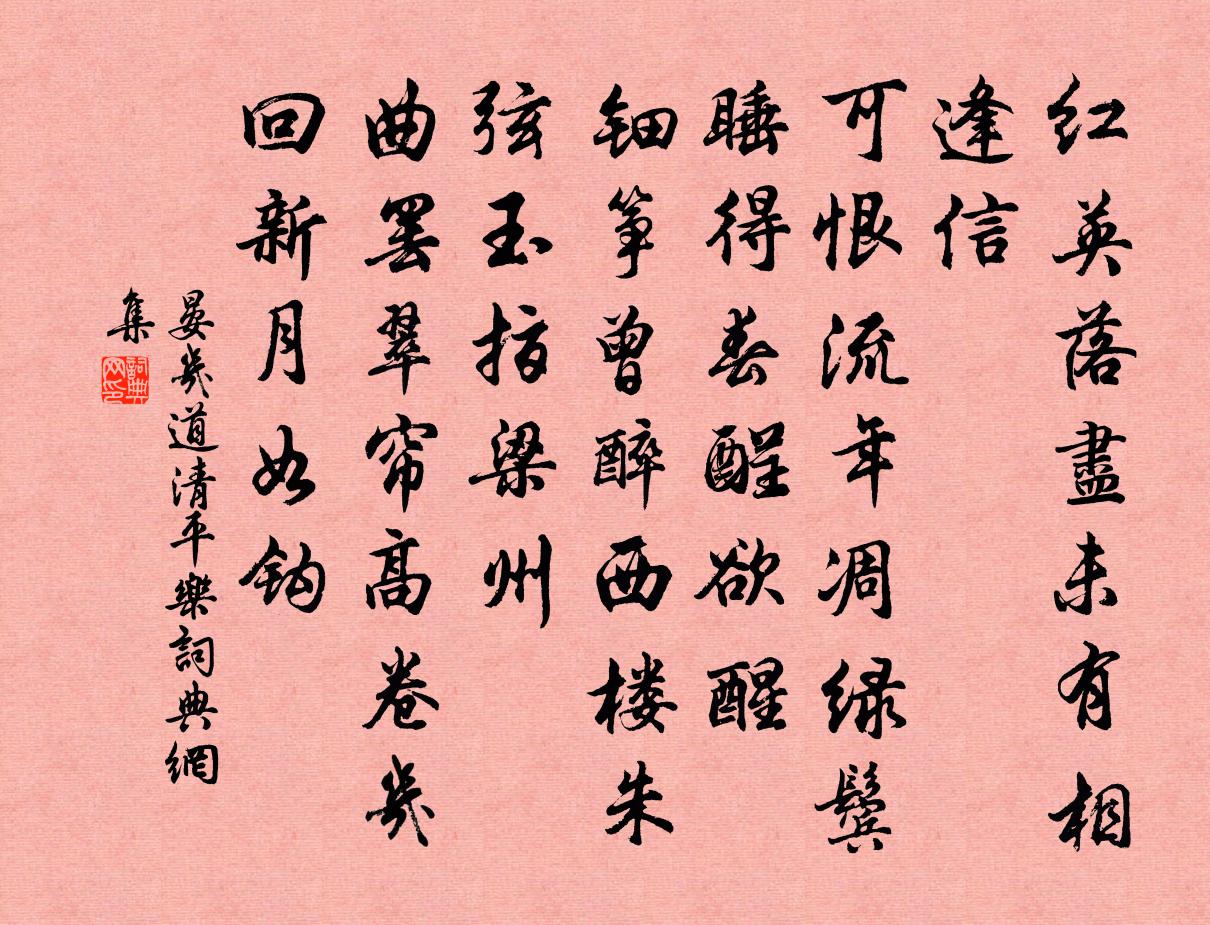 红英落盡未有相
逢信
可恨流年凋绿鬓
睡得春酲欲醒
钿筝曾醉西楼朱
弦玉指梁州
曲罢翠帘高卷幾
回新月如钩
晏幾道清平樂詞典網
集
詞典
网印